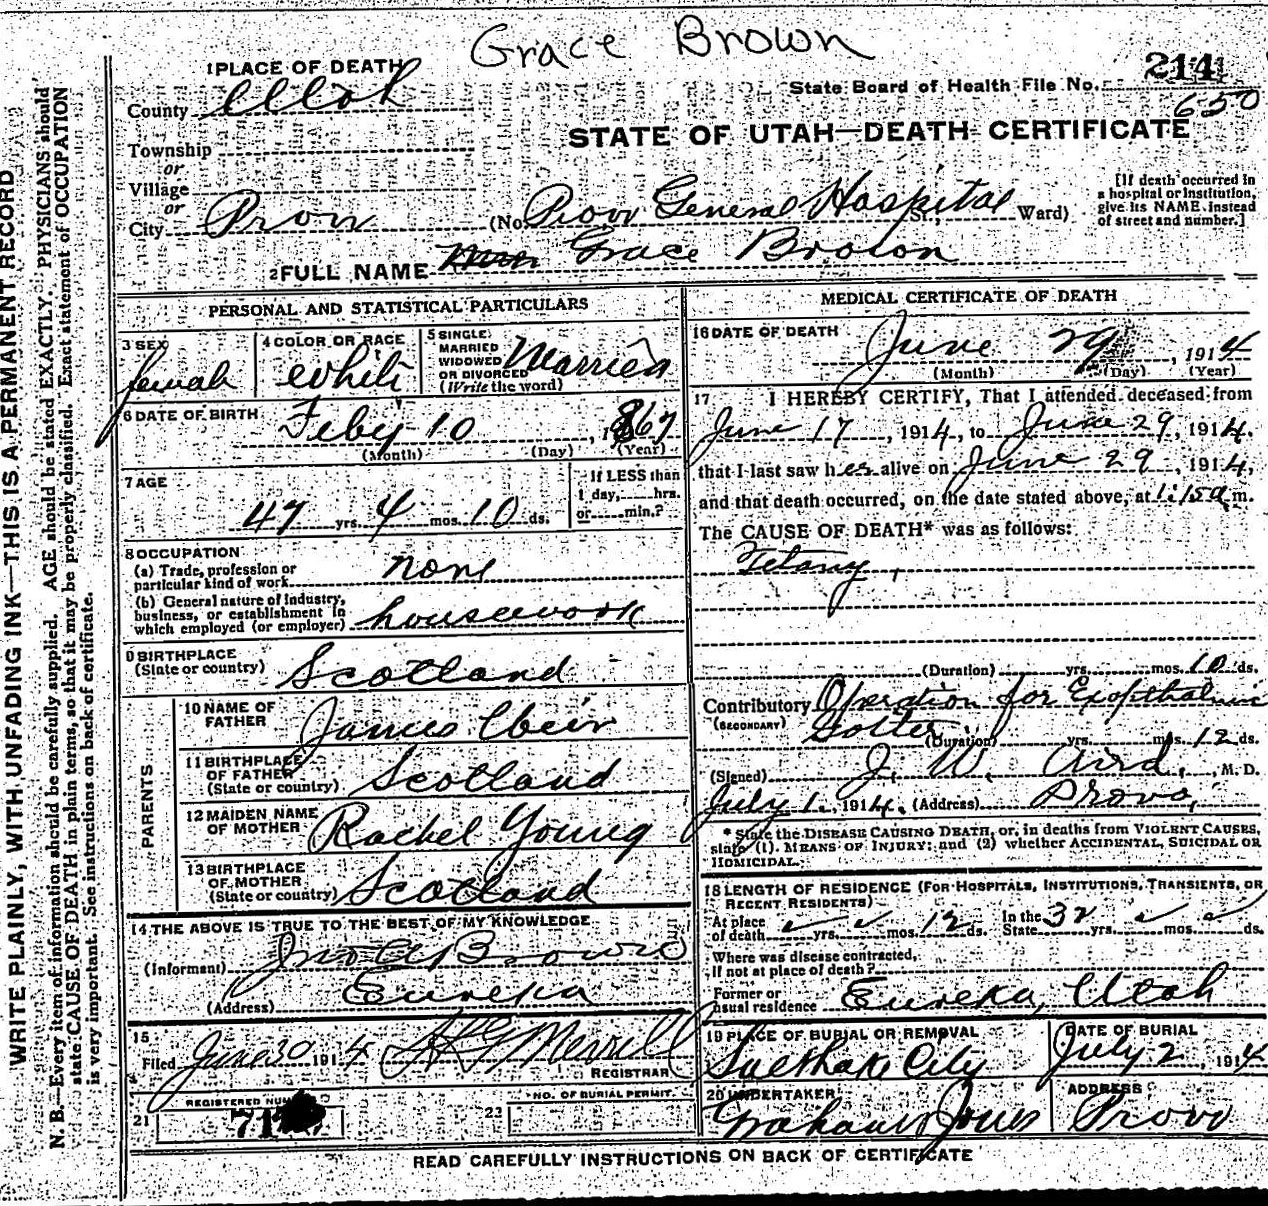 Grace Brown
1 PLACE OF DEATH
214
County Utah
State Board of Health File No.
650
STATE OF UTAH—DEATH CERTIFICATE
Township
or
Village
or
City Provo (No. Provo General Hospital St., Ward)
[If death occurred in
a hospital or institution,
give its NAME instead
of street and number.]
2 FULL NAME Mrs Grace Brown
PERSONAL AND STATISTICAL PARTICULARS
3 SEX
female
4 COLOR OR RACE
white
5 SINGLE
MARRIED
WIDOWED
OR DIVORCED
(Write the word)
Married
6 DATE OF BIRTH
Feby 10, 1867
(Month) (Day) (Year)
7 AGE
47 yrs. 4 mos. 10 ds.
If LESS than
1 day, hrs.
or min.?
8 OCCUPATION
(a) Trade, profession or
particular kind of work none
(b) General nature of industry,
business, or establishment in
which employed (or employer) housework
9 BIRTHPLACE
(State or country) Scotland
PARENTS
10 NAME OF
FATHER James Weir
11 BIRTHPLACE
OF FATHER
(State or country) Scotland
12 MAIDEN NAME
OF MOTHER Rachel Young
13 BIRTHPLACE
OF MOTHER
(State or country) Scotland
14 THE ABOVE IS TRUE TO THE BEST OF MY KNOWLEDGE
(Informant) Jno Brown
(Address) Eureka
15
Filed June 30 1914 Merrill
REGISTRAR
REGISTERED NUM
21 71
22 NO. OF BURIAL PERMIT.
MEDICAL CERTIFICATE OF DEATH
16 DATE OF DEATH
June 29, 1914
(Month) (Day) (Year)
17 I HEREBY CERTIFY, That I attended deceased from
June 17, 1914, to June 29, 1914.
that I last saw her alive on June 29, 1914,
and that death occurred, on the date stated above, at 1:15a m.
The CAUSE OF DEATH* was as follows:
Tetany,
(Duration) yrs. mos. 10 ds.
Contributory Operation for Exopthalmic
(SECONDARY) Goiter
(Duration) yrs. mos. 12 ds.
(Signed) J. W. Aird, M. D.
July 1. 1914. (Address) Provo,
* State the DISEASE CAUSING DEATH, or, in deaths from VIOLENT CAUSES,
state (1) MEANS OF INJURY; and (2) whether ACCIDENTAL, SUICIDAL OR
HOMICIDAL.
18 LENGTH OF RESIDENCE (FOR HOSPITALS, INSTITUTIONS, TRANSIENTS, OR
RECENT RESIDENTS)
At place
of death yrs. mos. 12 ds. In the
State 32 yrs. mos. ds.
Where was disease contracted,
if not at place of death?
Former or
usual residence Eureka, Utah
19 PLACE OF BURIAL OR REMOVAL
Salt Lake City
DATE OF BURIAL
July 2, 1914
20 UNDERTAKER
Graham Jones
ADDRESS
Provo
READ CAREFULLY INSTRUCTIONS ON BACK OF CERTIFICATE
WRITE PLAINLY, WITH UNFADING INK—THIS IS A PERMANENT RECORD
N. B.—Every item of information should be carefully supplied. AGE should be stated EXACTLY. PHYSICIANS should
state CAUSE OF DEATH in plain terms, so that it may be properly classified. Exact statement of OCCUPATION
is very important. See instructions on back of certificate.